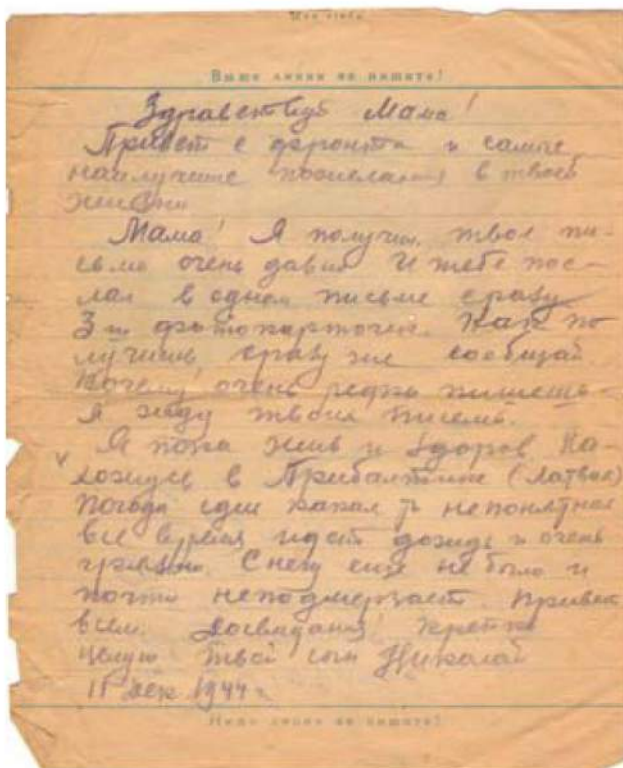 Выше линии не пишите!
Здравствуй Мама!
Привет с фронта и самые
наилучшие пожелания в твоей
жизни
Мама! Я получил твое пи-
сьмо очень давно И тебе пос-
лал в одном письме сразу
3 ш фотокарточки. Как по
лучишь сразу же сообщай.
Почему очень редко пишешь
Я жду твоих писем.
Я пока жив и здоров На-
хожусь в Прибалтике (Латвия)
Погода здесь какая то непонятная
все время идет дождь и очень
грязно. Снегу еще не было и
почти неподмерзает. Привет
всем. Досвидания! Крепко
целую твой сын Николай
11 дек 1944 г
Ниже линии не пишите!